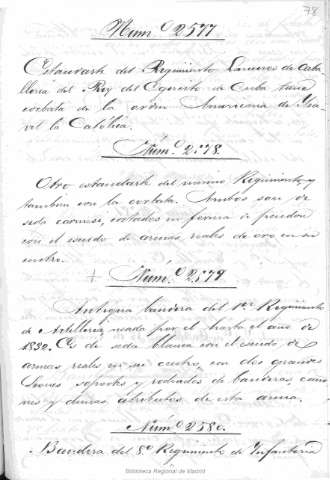 78
Núm.º 2577
Estandarte del Regimiento Lanceros de Caba-
lleria del Rey del Egercito de Cuba tiene
corbata de la orden Americana de Isa-
vel la Católica.
Núm.º 2578.
Otro estandarte del mismo Regimiento, y
tambien con la corbata. Ambos son de
seda carmesi, cortados en forma de pendon
con el escudo de armas reales de oro en su
centro.
+ Núm.º 2579
Antigua bandera del 1er Regimiento
de Artilleria, usada por el hasta el año de
1832. Es de seda blanca con el escudo de
armas reales en su centro, con dos grandes
Leones soportes y rodeados de banderas, caño-
nes y demas atributos de esta arma.
Núm.º 2580.
Bandera del 8º Regimiento de Infanteria
Biblioteca Regional de Madrid